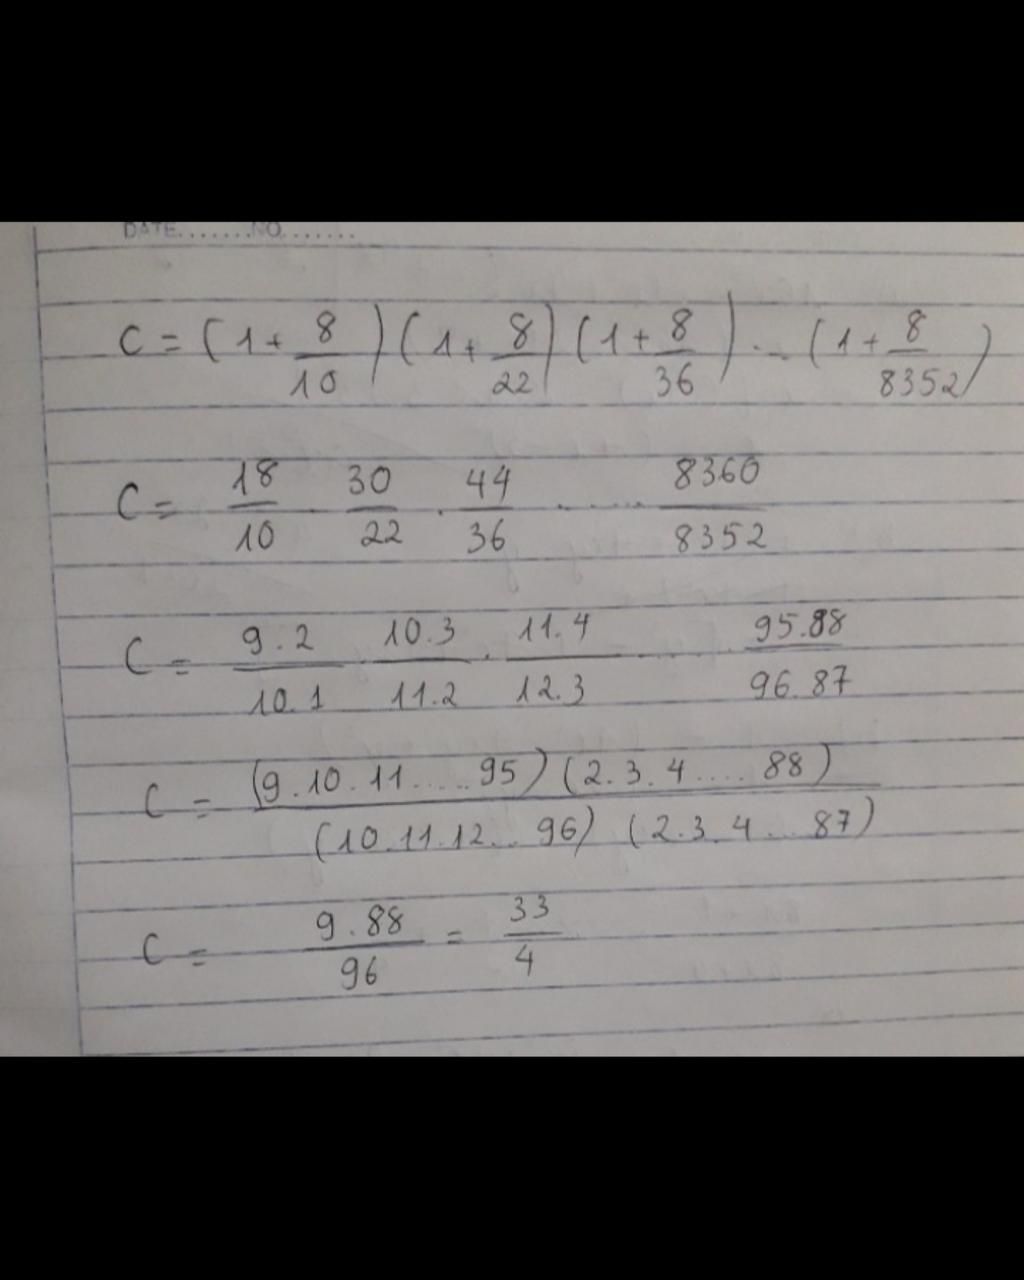 DATE.......NO.......
C = (1 + 8/10) (1 + 8/22) (1 + 8/36) ... (1 + 8/8352)
C = 18/10 . 30/22 . 44/36 . ..... 8360/8352
C = 9.2/10.1 . 10.3/11.2 . 11.4/12.3 ..... 95.88/96.87
C = (9.10.11.....95)(2.3.4....88)/(10.11.12...96)(2.3.4...87)
C = 9.88/96 = 33/4